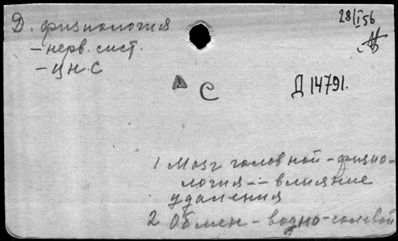 Д. физиология
28/I 56
- нерв. сист.
- ц н. с
С
Д 14791.
1 Мозг головной - физио-
логия - влияние
удаления
2 Обмен - водно-солевой